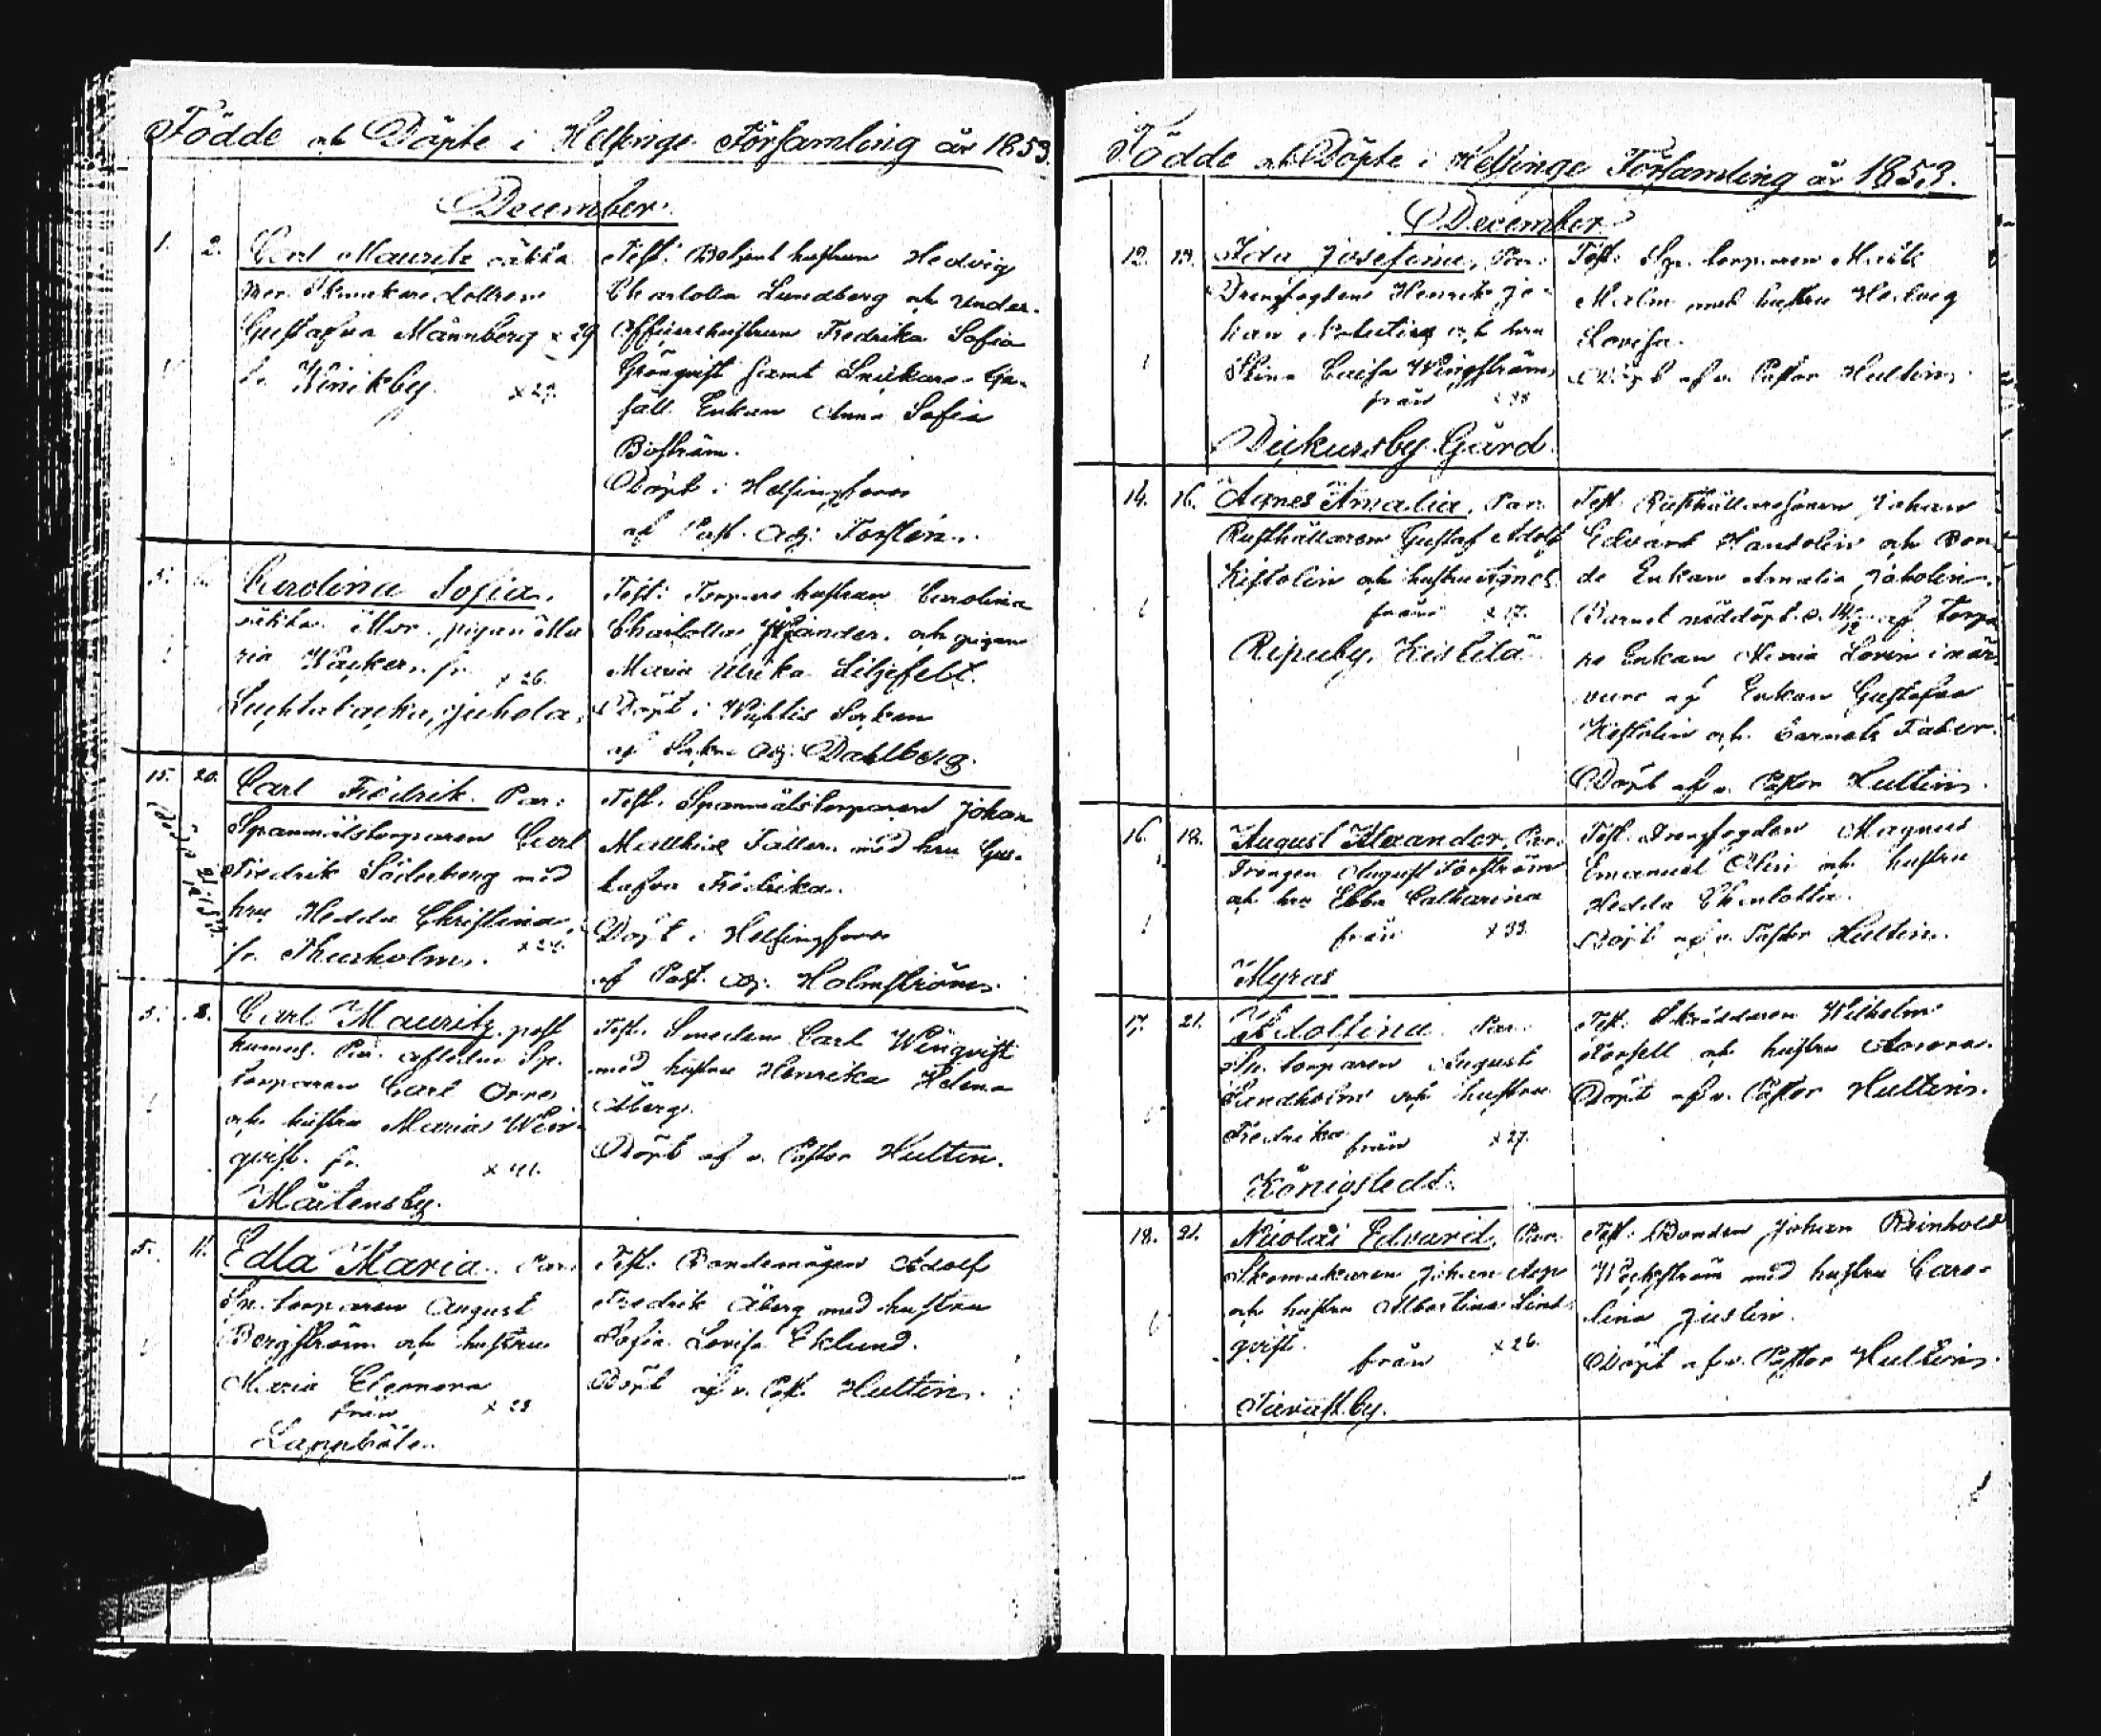 Födde och Döpte i Helsinge Församling år 1853.
December.
1. 2. Carl Mauritz oäkta
Mor. Skrukare dottren
Gustafva Männberg x 29
fr. Winikby. x 29.
Test: Betjent hustrun Hedvig
Charlotta Lundberg och Under-
officiershustrun Fredrika Sofia
Grönqvist samt Snickare-Ge-
säll Enkan Anna Sofia
Boström.
Döpt i Helsingfors
af Past. Adj. Forstén.
5. 6. Carolina Sofia.
oäkta. Mor. pigan Ma
ria Wacker. fr. x 26.
Luhtabacka, Juhola.
Test: Torpare hustrun Carolina
Charlotta och pigan
Maria Ulrika Liljefelt.
Döpt i Wichtis Socken
af Sockne Adj. Dahlberg.
15. 20. Carl Fredrik. Par:
Spanmålstorparen Carl
Fredrik Söderberg med
hru Hedda Christina
fr. Thurholm. x 24.
Test. Spanmålstorparen Johan
Matthias Faller med hru Gus-
tafva Fredrika.
Döpt i Helsingfors
af Past. Adj. Holmström.
5. 8. Carl Mauritz. post
humus. Par. aflidne Sp.
torparen Carl Orre
och hustru Maria Win-
qvist. fr. x 41.
Mårtensby.
Test. Smeden Carl Winqvist
med hustru Henrika Helena
Åberg.
Döpt af v. Pastor Hultin.
5. 11. Edla Maria. Par.
Sp. torparen August
Bergström och hustru
Maria Eleonora
från x 23
Lappböle.
Test. Bondemågen Adolf
Fredrik Åberg med hustru
Sofia Lovisa Eklund.
Döpt af v. Past. Hultin.
Födde och Döpte i Helsinge Församling år 1853.
December
12. 13. Ida Josefina, Par:
Drengfogden Henrik Jo-
han och hru
Stina Caisa Wingström
från x 33
Dickursby Gård.
Test. Sp. torparen Matts
Malm med hustru Hedvig
Lovisa.
Döpt af v. Pastor Hultin.
14. 16. Agnes Amalia, Par.
Rusthållaren Gustaf Adolf
Kistolin och hustru Agnes.
från x 17.
Ripuby, Kistilä
Test. Rusthållaresonen Johan
Edvard Hanholin och Bon-
de Enkan Amalia Jokolin.
Barnet nöddöpt d. 14/12 af torpa
re Enkan Mina Lovin i när-
varo af Enkan Gustafva
Kistolin och barnets Fader.
Döpt af v. Pastor Hultin.
16. 18. August Alexander, Par.
Drengen August Forsström
och hru Ebba Catharina
från x 33.
Myras
Test. Drengfogden Magnus
Emanuel Olin och hustru
Hedda Charlotta.
Döpt af v. Pastor Hultin.
17. 21. Adolfina. Par.
Sp. torparen August
Sandholm och hustru
Fredrika från x 27.
Königstedt.
Test. Skräddaren Wilhelm
Forsell och hustru Aurora.
Döpt af v. Pastor Hultin.
18. 21. Nicolai Edvard, Par.
Skomakaren Johan Asp
och hustru Albertina Lind-
qvist. från x 26.
Tavastby.
Test. Bonden Johan Reinhold
Weckström med hustru Caro-
lina Justin.
Döpt af v. Pastor Hultin.